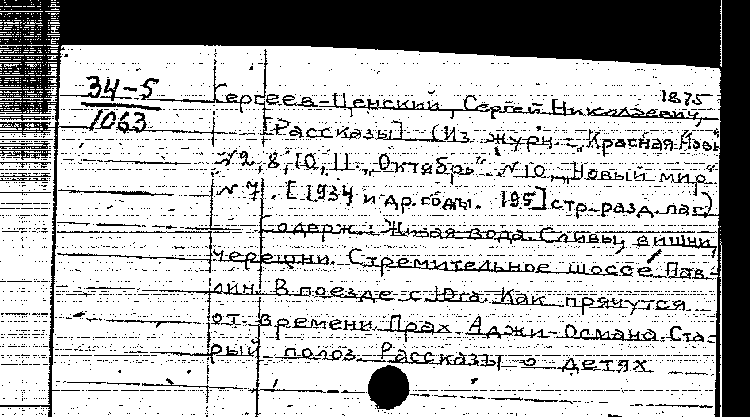 34-5
1063
1875
Сергеев-Ценский, Сергей Николаевич,
[Рассказы] (Из журн.: „Красная Новь"
№ 2, 8, 10, 11. „Октябрь" № 10, „Новый мир"
№ 7. [1934 и др. годы. 195] стр. разд. паг.)
Содерж.: Живая вода. Сливы, вишни,
черешни. Стремительное шоссе. Пав-
лин. В поезде с юга. Как прячутся
от времени. Прах Аджи-Османа. Ста-
рый полоз. Рассказы о детях